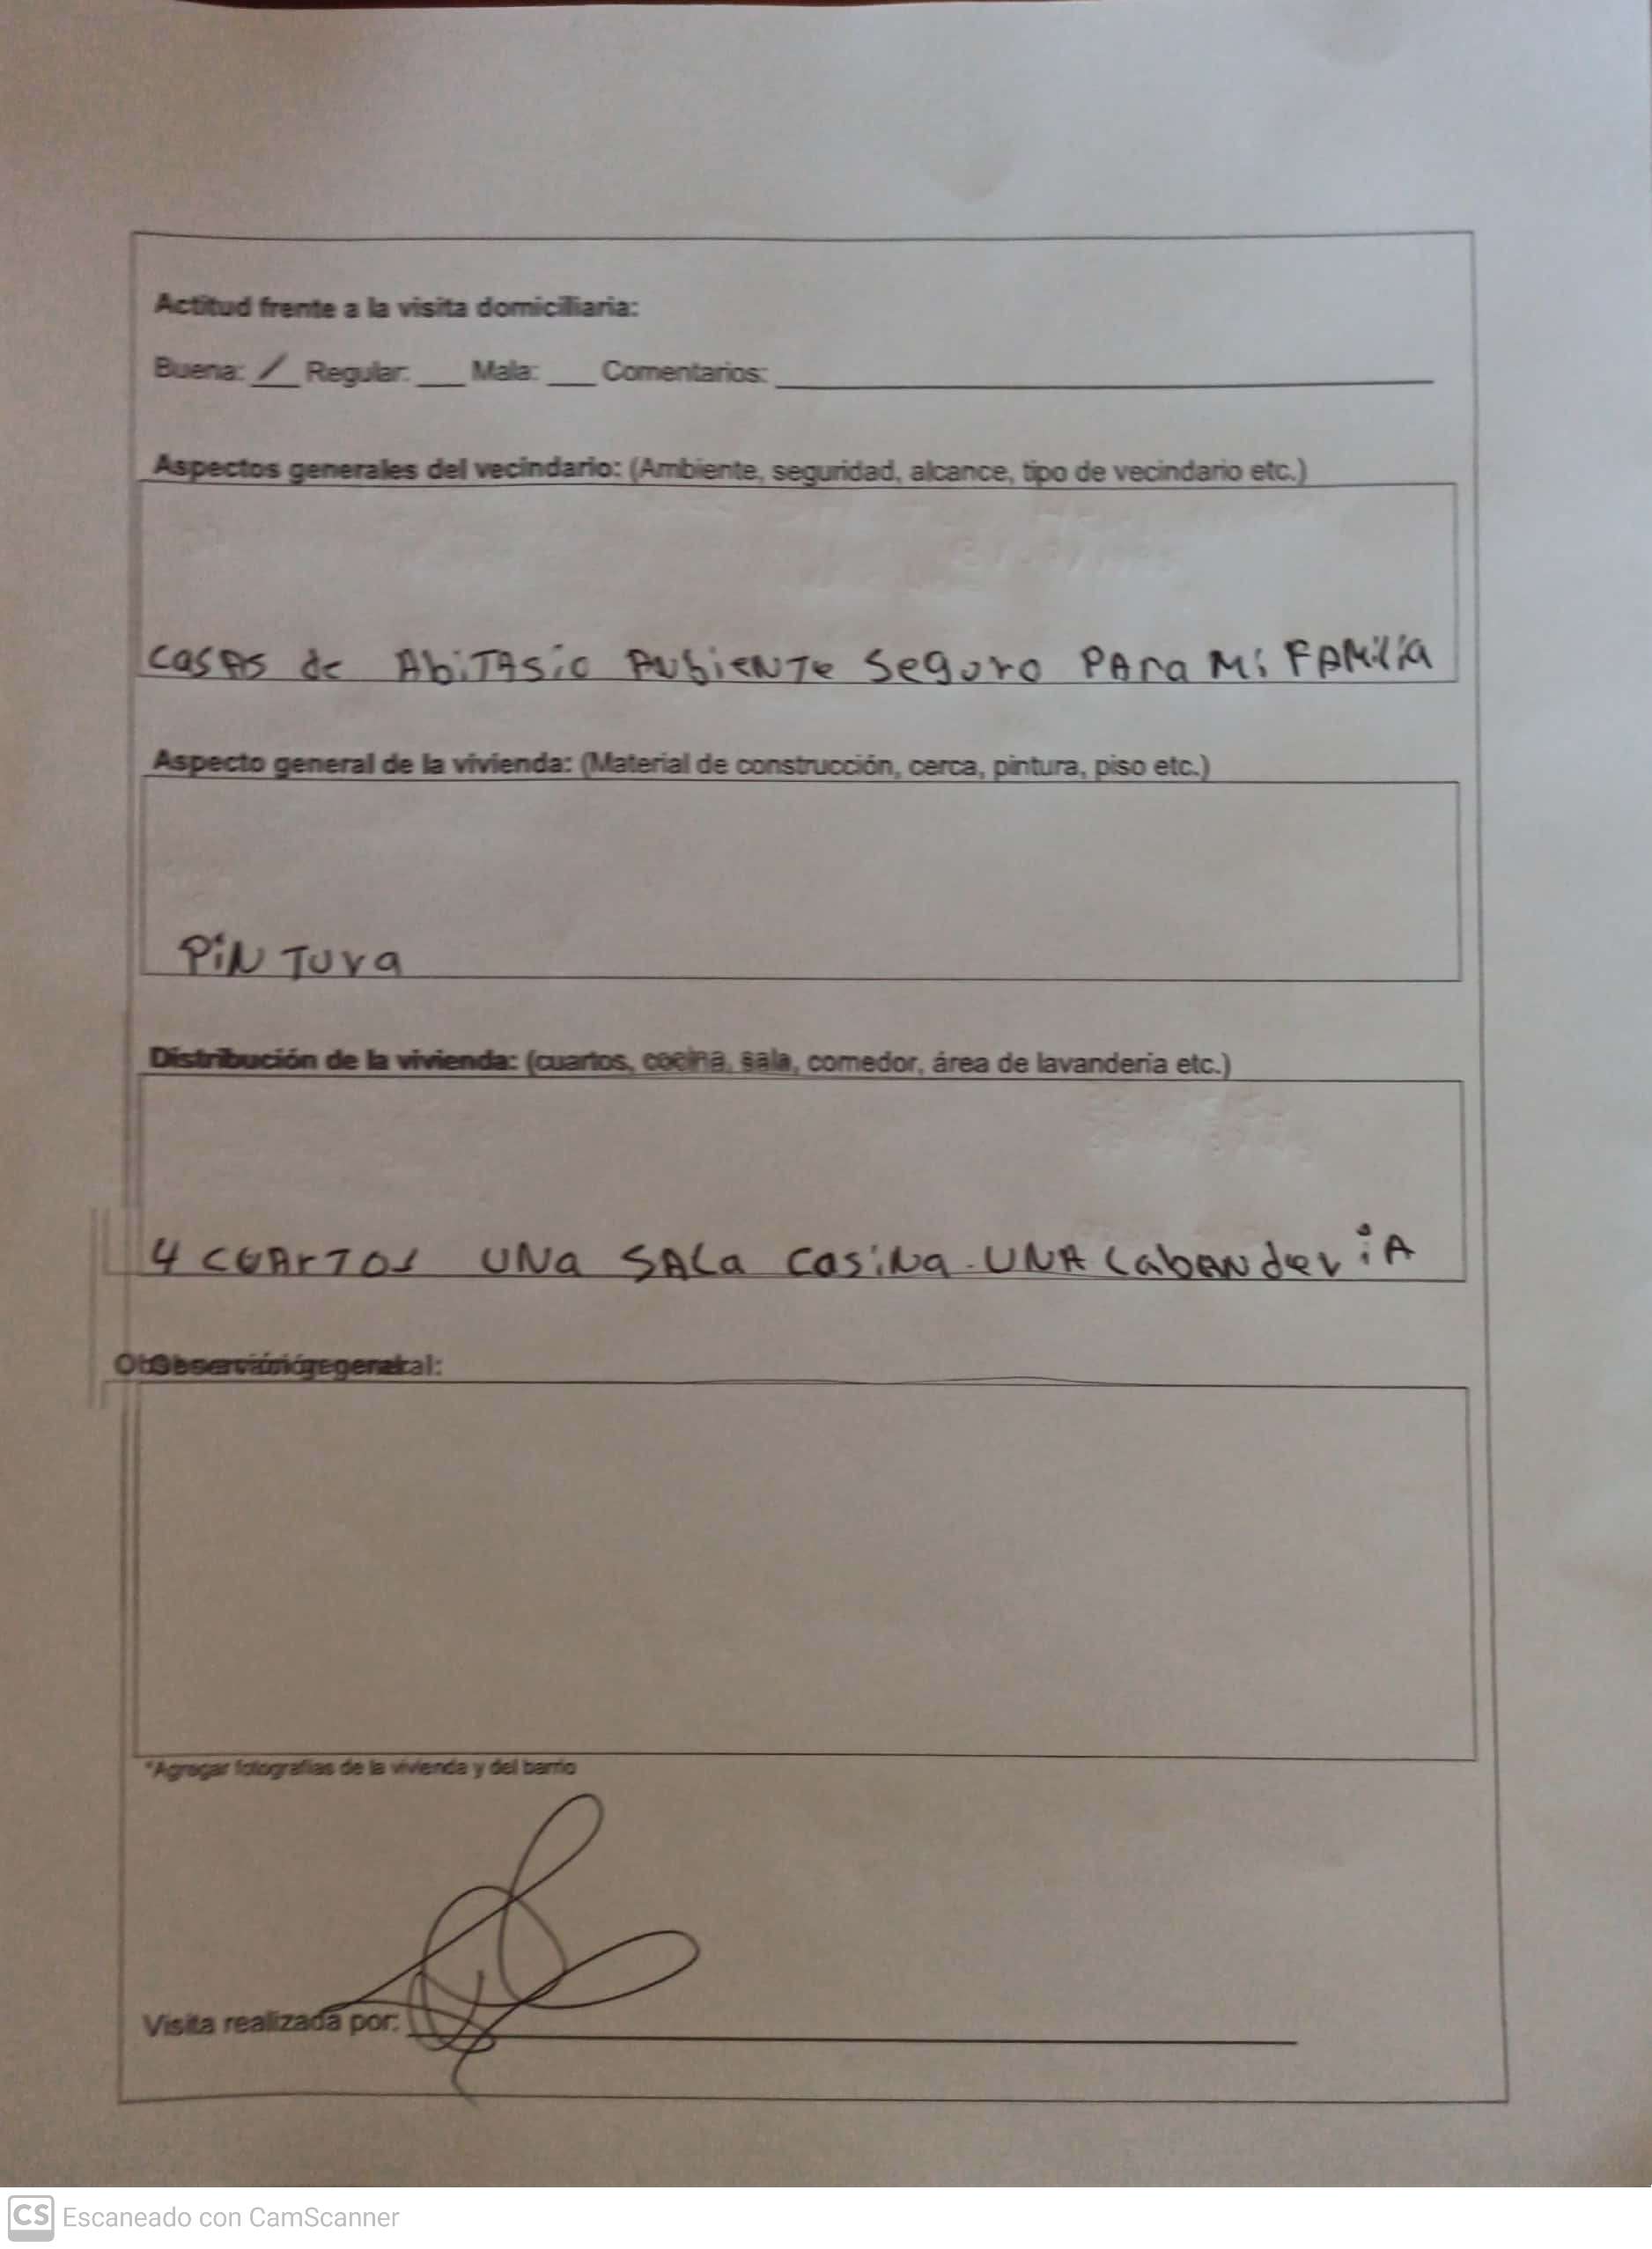 Actitud frente a la visita domiciliaria:
Buena: / Regular: ___ Mala: ___ Comentarios: ___
Aspectos generales del vecindario: (Ambiente, seguridad, alcance, tipo de vecindario etc.)
casas de Abitasio Aubiente Seguro para mi familia
Aspecto general de la vivienda: (Material de construcción, cerca, pintura, piso etc.)
Pintura
Distribución de la vivienda: (cuartos, cocina, sala, comedor, área de lavandería etc.)
4 cuartos una sala casina una labanderia
general:
*Agregar fotografías de la vivienda y del barrio
Visita realizada por:
CS Escaneado con CamScanner